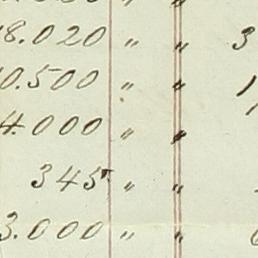 8.020 " " 3
0.500 " "
4.000 " "
345 " "
3.000 " "